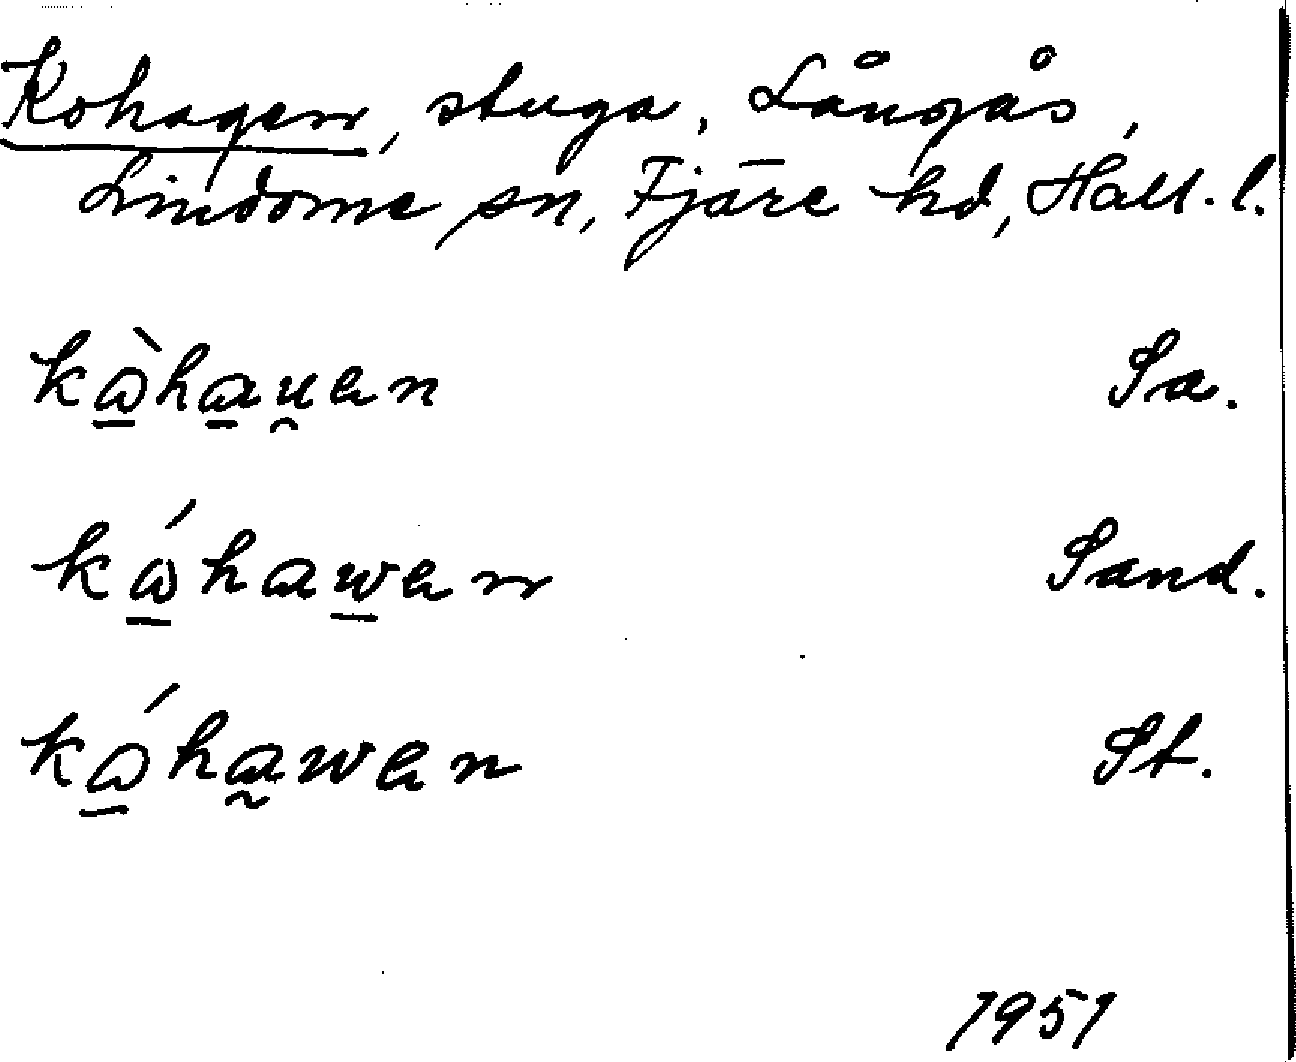 Kohagen, stuga, Långås,
Lindome sn, Fjäre hd, Hall. l.
kὼ̲ha̲u̯ən Sa.
kώ̲hawən Sand.
kώ̲ha̰wən St.
1951